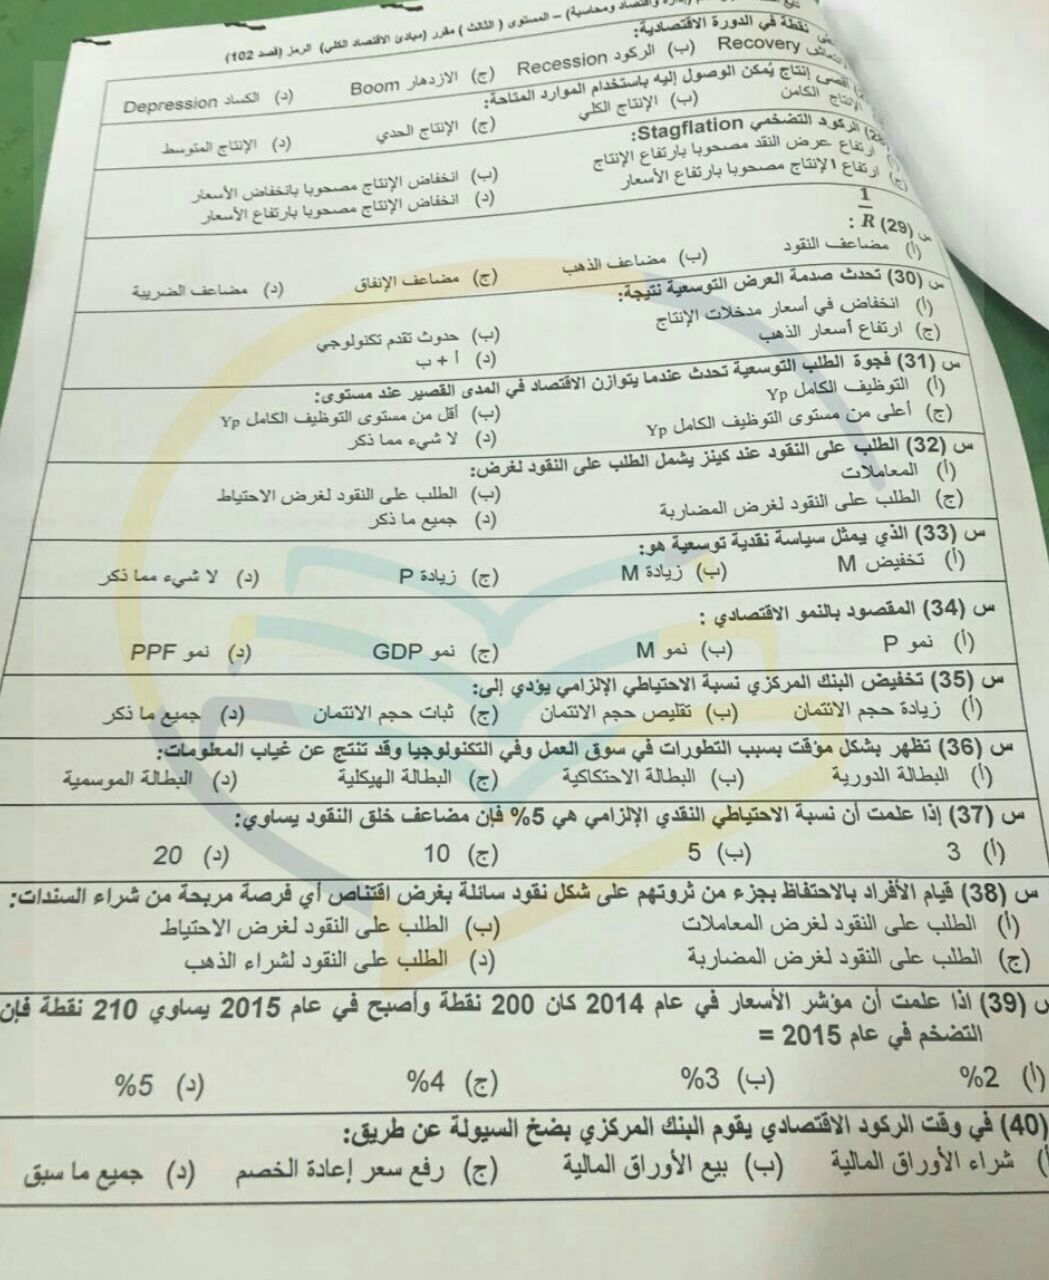 واقتصاد ومحاسبة) – المستوى ( الثالث ) مقرر (مبادئ الاقتصاد الكلي) الرمز (قصد 102)
نقطة في الدورة الاقتصادية:
Recovery (ب) الركود Recession (ج) الازدهار Boom (د) الكساد Depression
أقصى إنتاج يُمكن الوصول إليه باستخدام الموارد المتاحة:
الإنتاج الكامن (ب) الإنتاج الكلي (ج) الإنتاج الحدي (د) الإنتاج المتوسط
الركود التضخمي Stagflation:
ارتفاع عرض النقد مصحوبا بارتفاع الإنتاج (ب) انخفاض الإنتاج مصحوبا بانخفاض الأسعار
(ج) ارتفاع الإنتاج مصحوبا بارتفاع الأسعار (د) انخفاض الإنتاج مصحوبا بارتفاع الأسعار
س (29) 1/R :
(أ) مضاعف النقود (ب) مضاعف الذهب (ج) مضاعف الإنفاق (د) مضاعف الضريبة
س (30) تحدث صدمة العرض التوسعية نتيجة:
(أ) انخفاض في أسعار مدخلات الإنتاج (ب) حدوث تقدم تكنولوجي
(ج) ارتفاع أسعار الذهب (د) أ + ب
س (31) فجوة الطلب التوسعية تحدث عندما يتوازن الاقتصاد في المدى القصير عند مستوى:
(أ) التوظيف الكامل Yp (ب) أقل من مستوى التوظيف الكامل Yp
(ج) أعلى من مستوى التوظيف الكامل Yp (د) لا شيء مما ذكر
س (32) الطلب على النقود عند كينز يشمل الطلب على النقود لغرض:
(أ) المعاملات (ب) الطلب على النقود لغرض الاحتياط
(ج) الطلب على النقود لغرض المضاربة (د) جميع ما ذكر
س (33) الذي يمثل سياسة نقدية توسعية هو:
(أ) تخفيض M (ب) زيادة M (ج) زيادة P (د) لا شيء مما ذكر
س (34) المقصود بالنمو الاقتصادي :
(أ) نمو P (ب) نمو M (ج) نمو GDP (د) نمو PPF
س (35) تخفيض البنك المركزي نسبة الاحتياطي الإلزامي يؤدي إلى:
(أ) زيادة حجم الائتمان (ب) تقليص حجم الائتمان (ج) ثبات حجم الائتمان (د) جميع ما ذكر
س (36) تظهر بشكل مؤقت بسبب التطورات في سوق العمل وفي التكنولوجيا وقد تنتج عن غياب المعلومات:
(أ) البطالة الدورية (ب) البطالة الاحتكاكية (ج) البطالة الهيكلية (د) البطالة الموسمية
س (37) إذا علمت أن نسبة الاحتياطي النقدي الإلزامي هي 5% فإن مضاعف خلق النقود يساوي:
(أ) 3 (ب) 5 (ج) 10 (د) 20
س (38) قيام الأفراد بالاحتفاظ بجزء من ثروتهم على شكل نقود سائلة بغرض اقتناص أي فرصة مربحة من شراء السندات:
(أ) الطلب على النقود لغرض المعاملات (ب) الطلب على النقود لغرض الاحتياط
(ج) الطلب على النقود لغرض المضاربة (د) الطلب على النقود لشراء الذهب
س (39) اذا علمت أن مؤشر الأسعار في عام 2014 كان 200 نقطة وأصبح في عام 2015 يساوي 210 نقطة فإن
التضخم في عام 2015 =
(أ) 2% (ب) 3% (ج) 4% (د) 5%
(40) في وقت الركود الاقتصادي يقوم البنك المركزي بضخ السيولة عن طريق:
أ) شراء الأوراق المالية (ب) بيع الأوراق المالية (ج) رفع سعر إعادة الخصم (د) جميع ما سبق